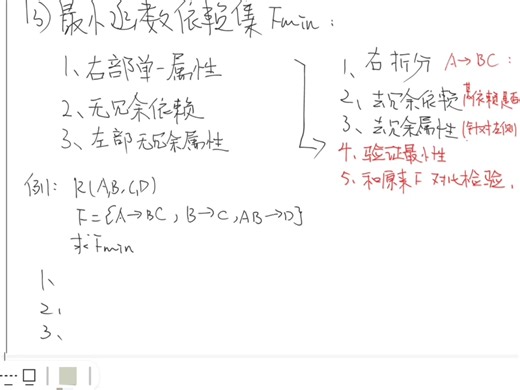 (5)最小函数依赖集Fmin：
1、右部单一属性
2、无冗余依赖
3、左部无冗余属性
1、右拆分 A→BC：
2、去冗余依赖(某依赖是否
3、去冗余属性(针对左侧
4、验证最小性
5、和原来F对比检验，
例1： R(A,B,C,D)
F={A→BC，B→C，AB→D}
求Fmin
1、
2、
3、